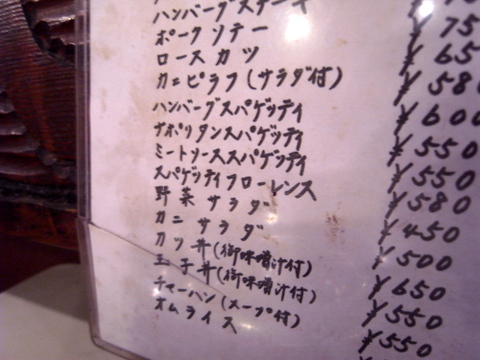 ハンバーグステーキ
ポークソテー ¥75
ロースカツ ¥65
カニピラフ(サラダ付) ¥580
ハンバーグスパゲッティ ¥600
ナポリタンスパゲッティ ¥550
ミートソーススパゲッティ ¥550
スパゲッティフローレンス ¥580
野菜サラダ ¥450
カニサラダ ¥500
カツ丼(御味噌汁付) ¥650
玉子丼(御味噌汁付) ¥550
チャーハン(スープ付) ¥550
オムライス